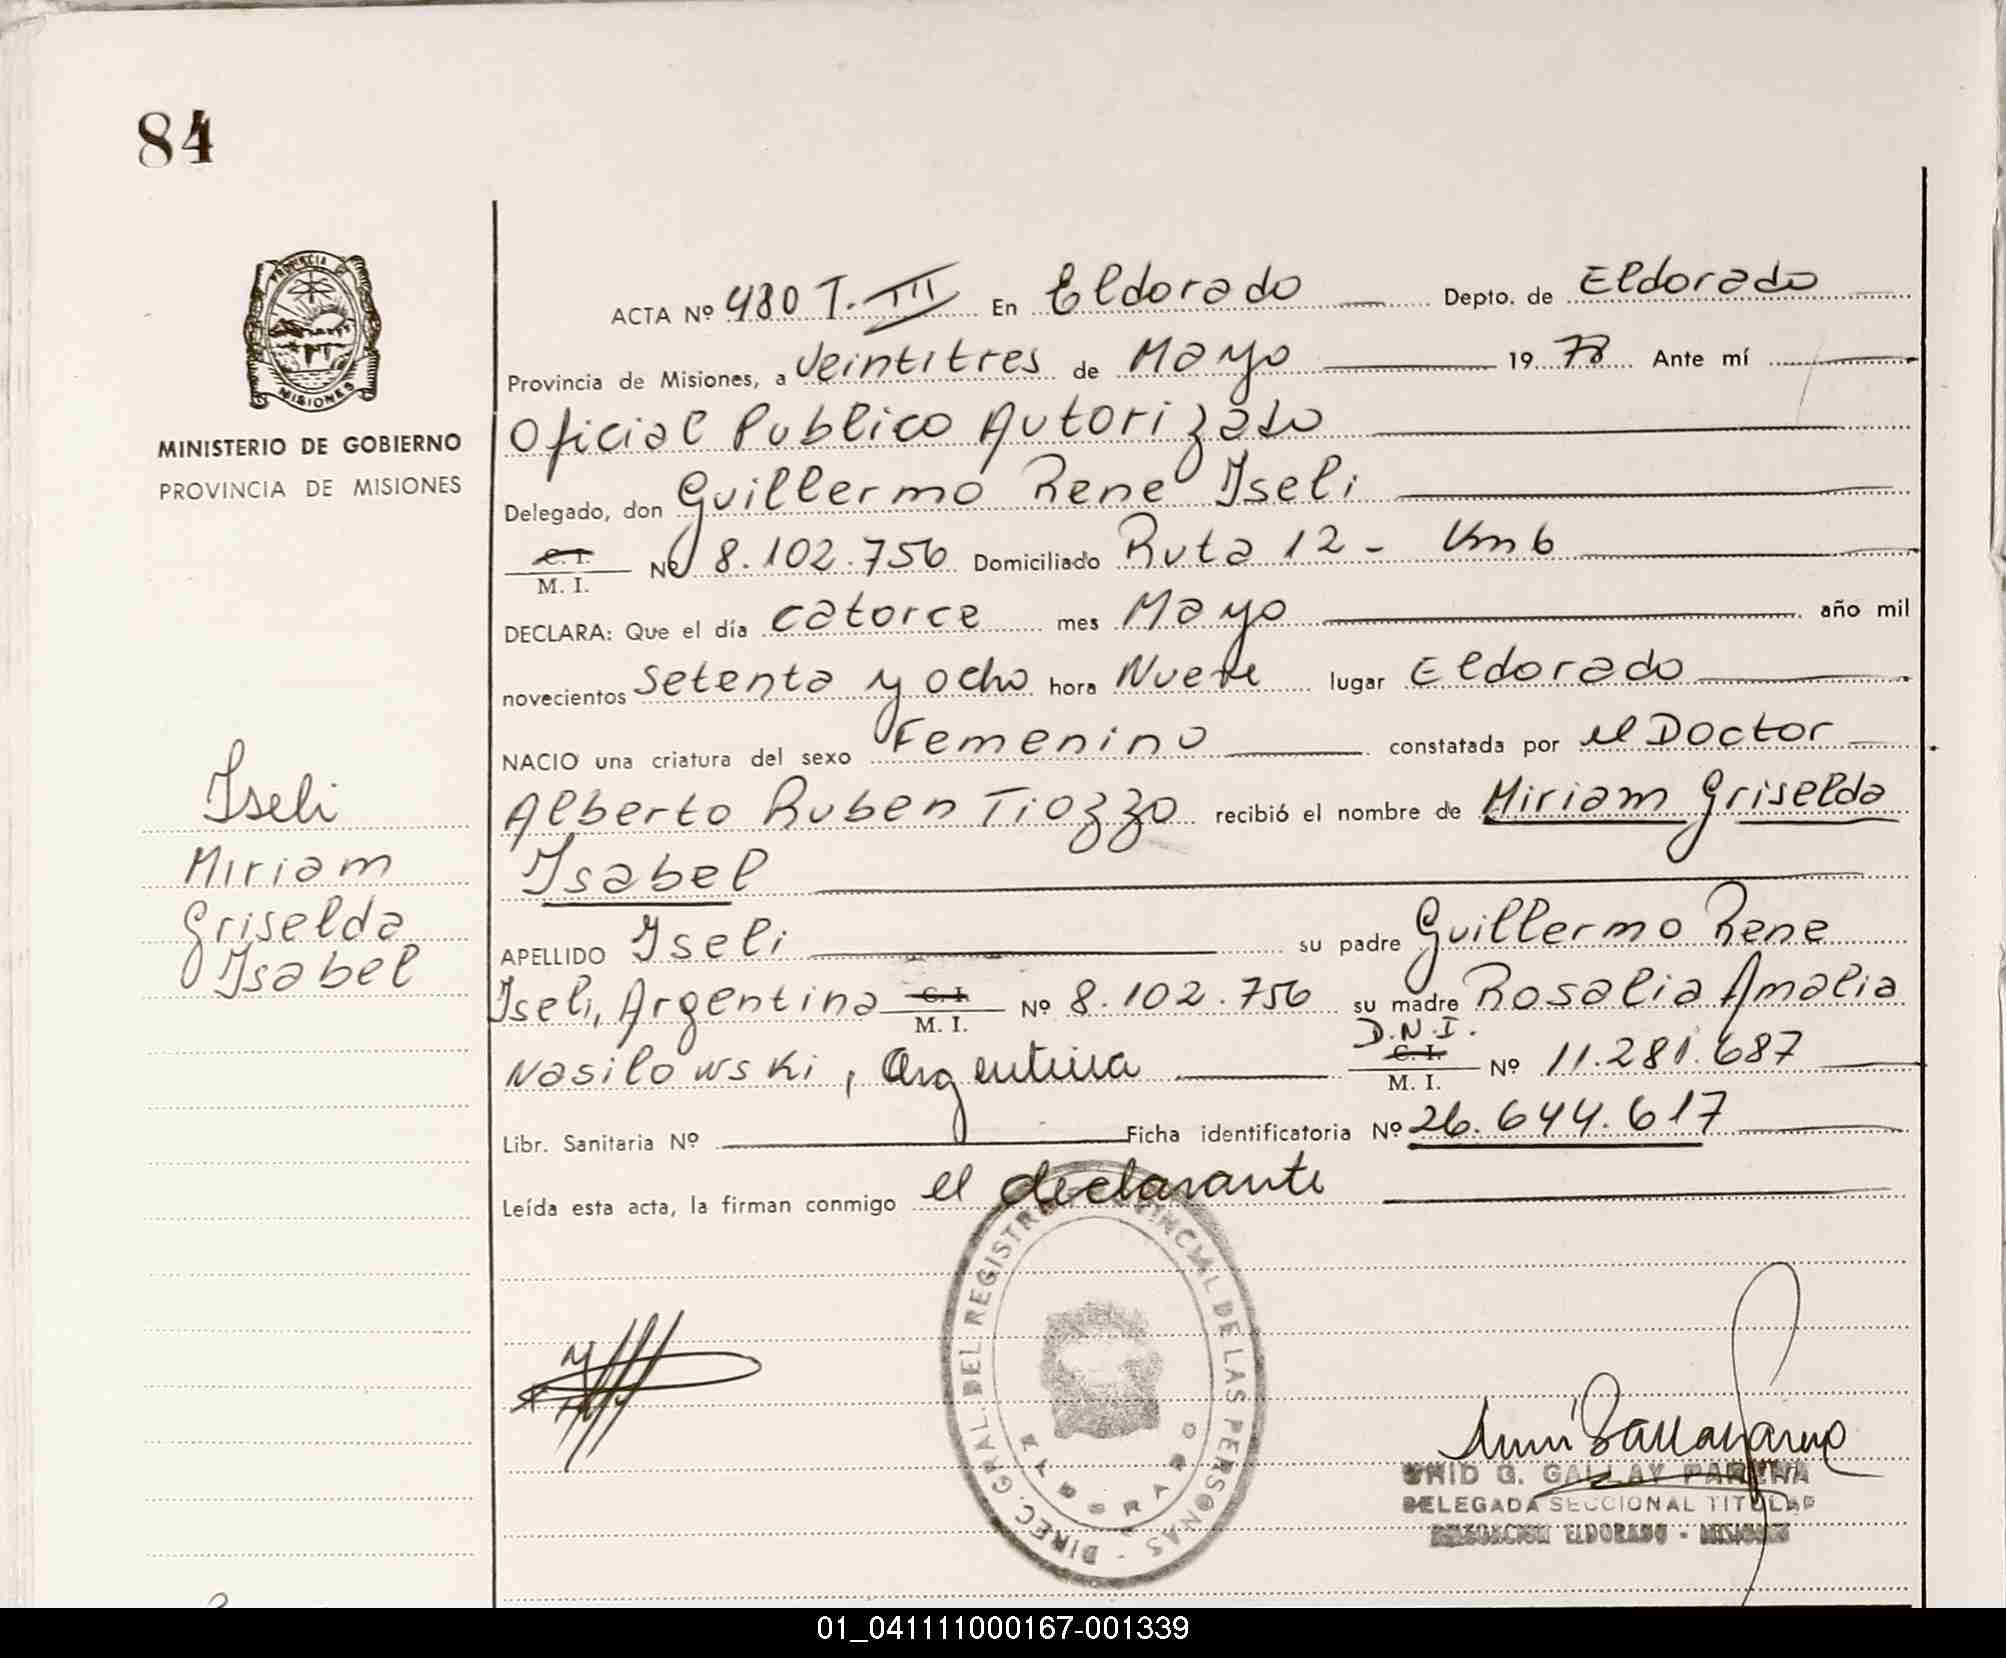 84
PROVINCIA
MISIONES
MINISTERIO DE GOBIERNO
PROVINCIA DE MISIONES
ACTA Nº 480 T. III En Eldorado Depto. de Eldorado
Provincia de Misiones, a Veintitres de Mayo 19 78 Ante mí
Oficial Publico Autorizado
Delegado, don Guillermo Rene Iseli
C. I.
M. I. Nº 8.102.756 Domiciliado Ruta 12 - Km 6
DECLARA: Que el día catorce mes Mayo año mil
novecientos Setenta y ocho hora Nueve lugar Eldorado
NACIO una criatura del sexo Femenino constatada por el Doctor
Alberto Ruben Tiozzo recibió el nombre de Miriam Griselda
Isabel
APELLIDO Iseli su padre Guillermo Rene
Iseli, Argentina C. I. M. I. Nº 8.102.756 su madre Rosalia Amalia
Nasilowski, Argentina D.N.I. C. I. M. I. Nº 11.281.687
Libr. Sanitaria Nº Ficha identificatoria Nº 26.644.617
Leída esta acta, la firman conmigo el declarante
Iseli
Miriam
Griselda
Isabel
DIREC. GRAL. DEL REGISTRO PROVINCIAL DE LAS PERSONAS -
ELDORADO
G. GALLAY
DELEGADA SECCIONAL TITULAR
DELEGACION ELDORADO - MISIONES
01_041111000167-001339